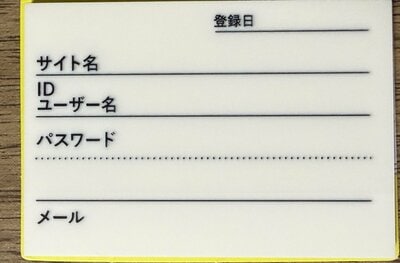 登録日
サイト名
ID
ユーザー名
パスワード
メール